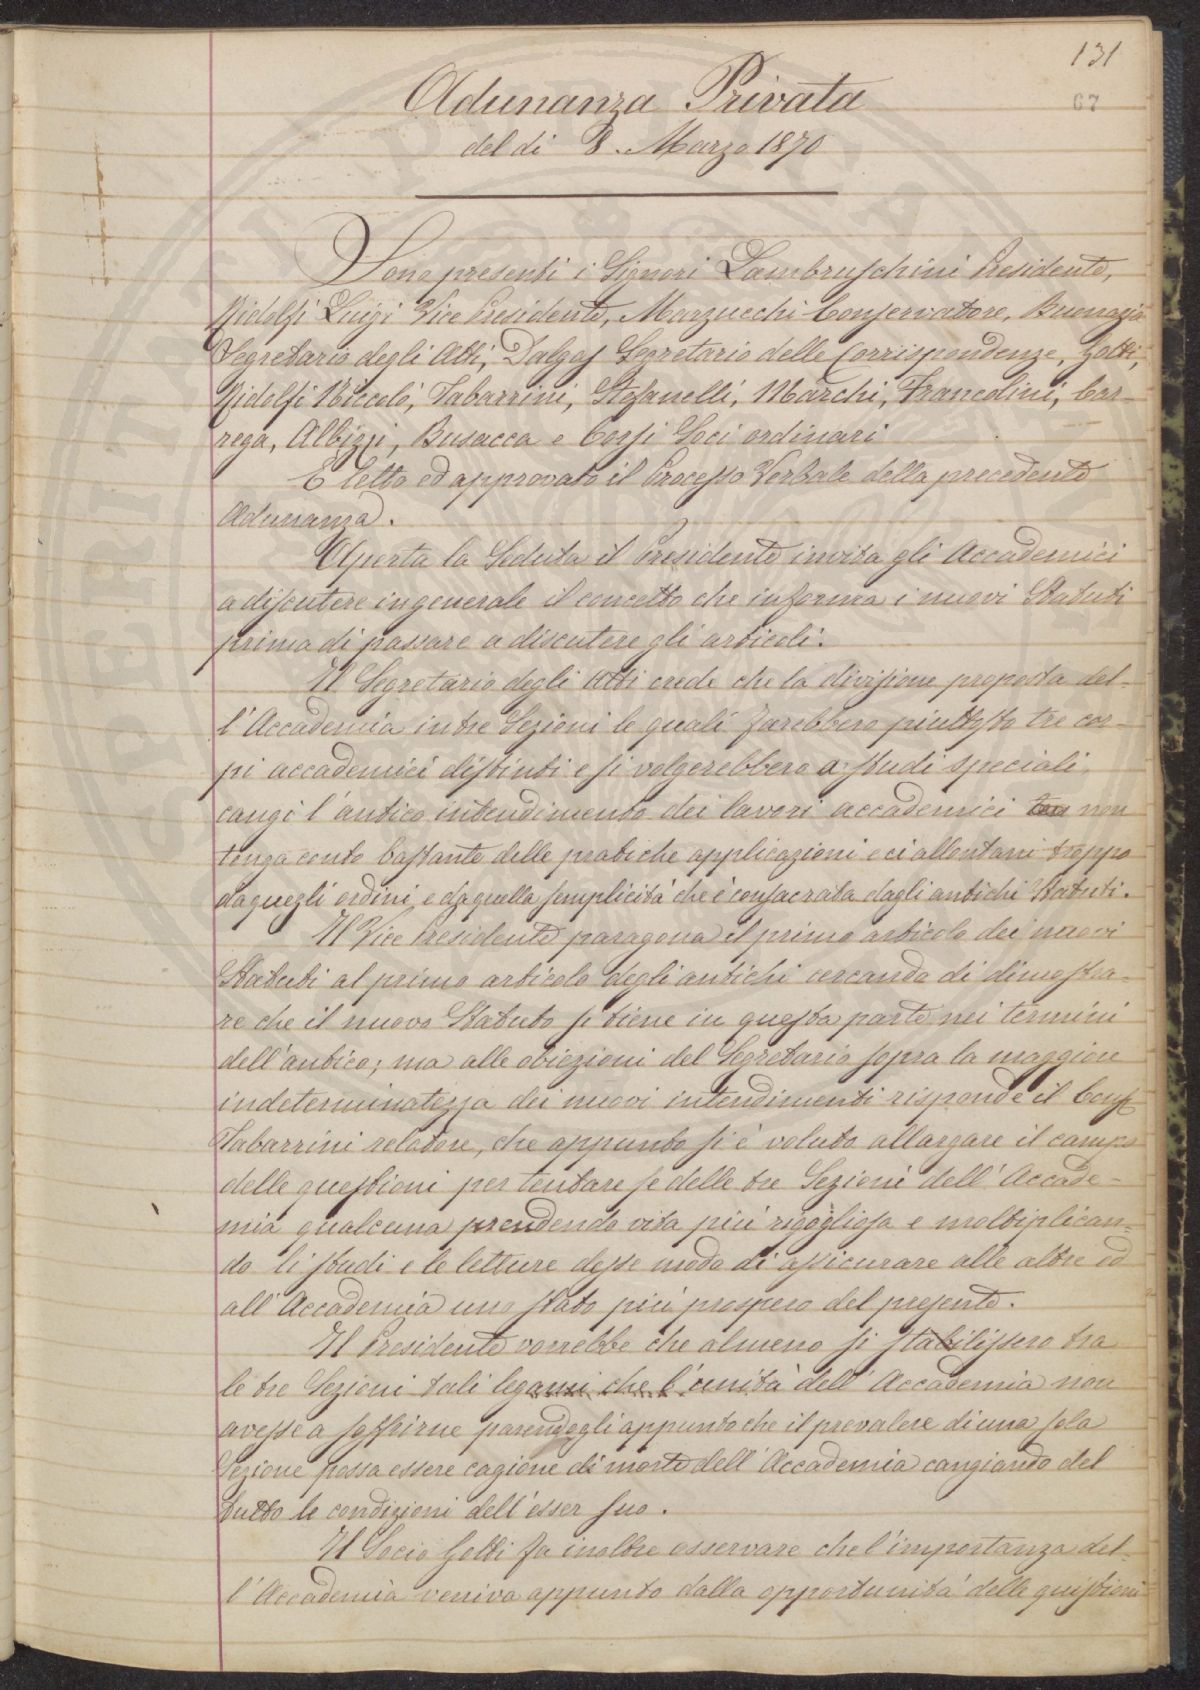 131
67
Adunanza Privata
del dì 8. Marzo 1870
Sono presenti i Signori Lambruschini Presidente,
Ridolfi Luigi Vice Presidente, Marzucchi Conservatore, Buonazia
Segretario degli Atti, Dalgas Segretario delle Corrispondenze, Gotti,
Ridolfi Niccolò, Tabarrini, Stefanelli, Marchi, Francolini, Car-
rega, Albizzi, Busacca e Corsi Soci ordinari
E letto ed approvato il Processo Verbale della precedente
Adunanza.
Aperta la Seduta il Presidente invita gli Accademici
a discutere in generale il concetto che informa i nuovi Statuti
prima di passare a discutere gli articoli.
Il Segretario degli Atti crede che la divisione proposta del-
l'Accademia in tre Sezioni le quali sarebbero piuttosto tre cor-
pi accademici distinti e si volgerebbero a studi speciali,
cangi l'antico intendimento dei lavori accademici non
tenga conto bastante delle pratiche applicazioni e ci allontani troppo
da quegli ordini e da quella semplicità che è consacrata dagli antichi Statuti.
Il Vice Presidente paragona il primo articolo dei nuovi
Statuti al primo articolo degli antichi cercando di dimostra-
re che il nuovo Statuto si tiene in questa parte nei termini
dell'antico; ma alle obiezioni del Segretario sopra la maggiore
indeterminatezza dei nuovi intendimenti risponde il Cons
Tabarrini relatore, che appunto si è voluto allargare il campo
delle questioni per tentare se delle tre Sezioni dell'Accade-
mia qualcuna prendendo vita più rigogliosa e moltiplican-
do li studi e le letture desse modo di assicurare alle altre ed
all'Accademia uno stato più prospero del presente.
Il Presidente vorrebbe che almeno si stabilissero tra
le tre Sezioni tali legami che l'unità dell'Accademia non
avesse a soffrirne parendogli appunto che il prevalere di una sola
Sezione possa essere cagione di morte dell'Accademia cangiando del
tutto le condizioni dell'esser suo.
Il Socio Gotti fa inoltre osservare che l'importanza del-
l'Accademia veniva appunto dalla opportunità delle quistioni